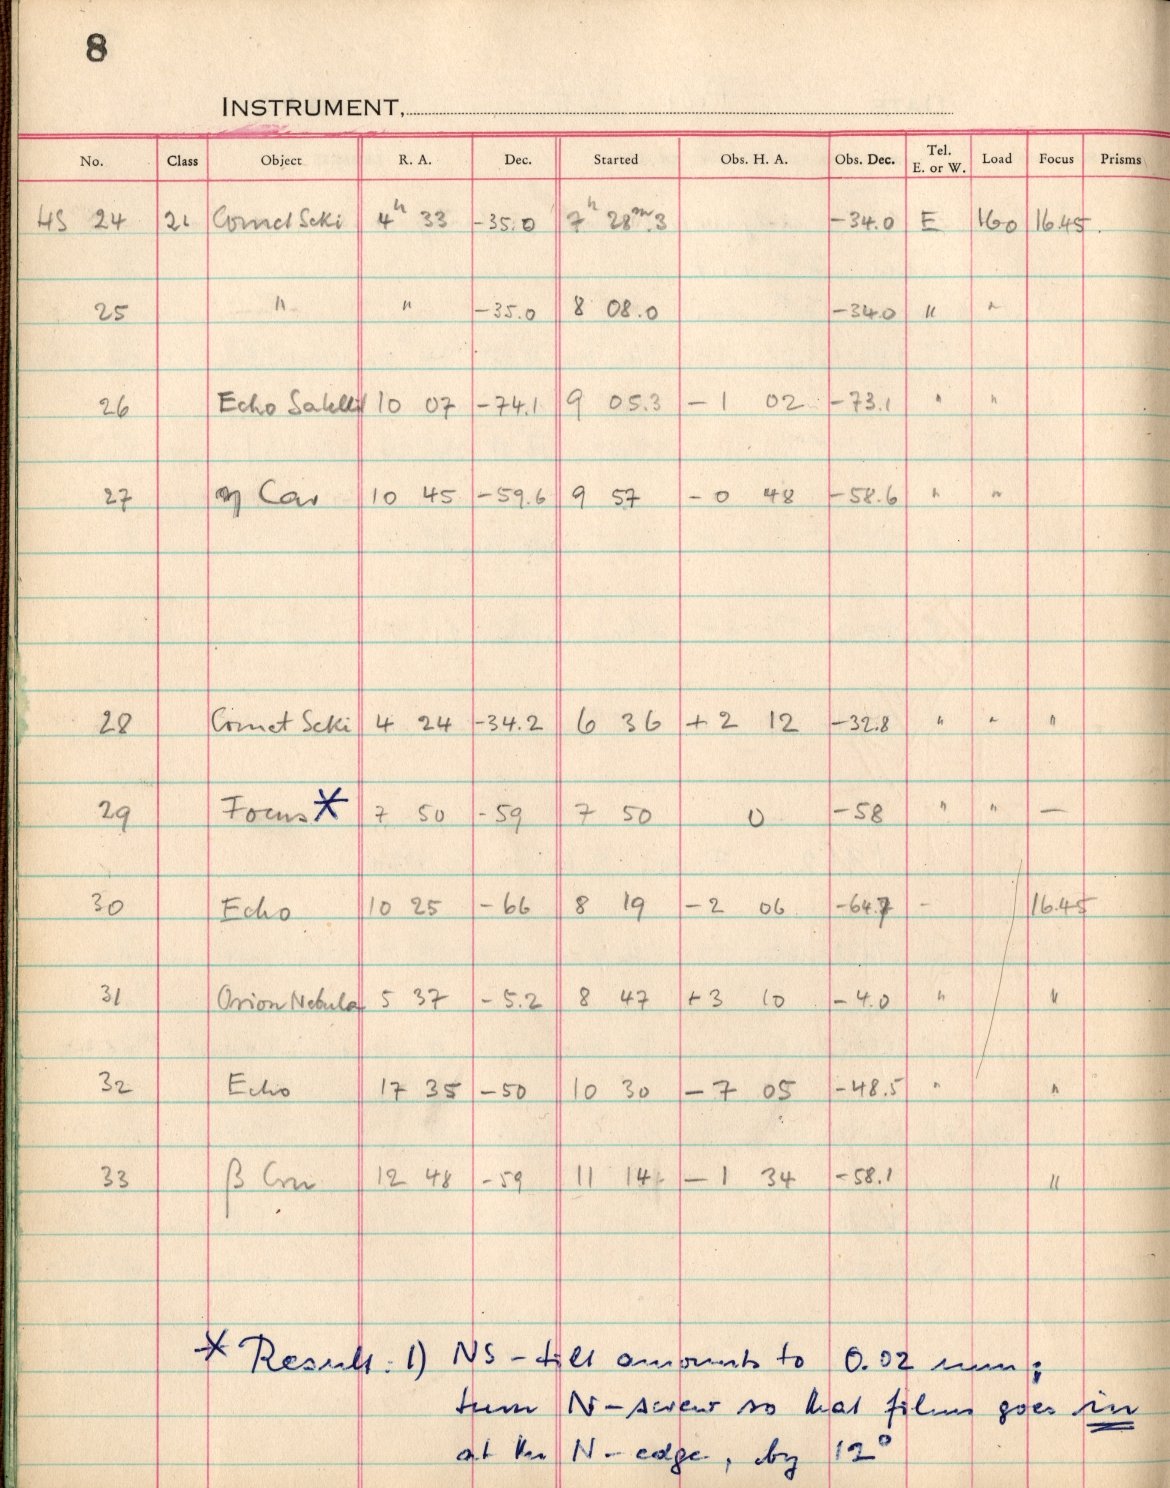 8
INSTRUMENT,
No. Class Object R. A. Dec. Started Obs. H. A. Obs. Dec. Tel. E. or W. Load Focus Prisms
HS 24 21 Comet Seki 4h 33 -35.0 7h 28m.3 -34.0 E 160 16.45
25 " " -35.0 8 08.0 -34.0 " "
26 Echo Satellit 10 07 -74.1 9 05.3 - 1 02 -73.1 " "
27 η Car 10 45 -59.6 9 57 - 0 48 -58.6 " "
28 Comet Seki 4 24 -34.2 6 36 + 2 12 -32.8 " " "
29 Focus* 7 50 -59 7 50 0 -58 " " —
30 Echo 10 25 -66 8 19 - 2 06 -64.7 - 16.45
31 Orion Nebula 5 37 -5.2 8 47 + 3 10 -4.0 " "
32 Echo 17 35 -50 10 30 - 7 05 -48.5 " "
33 β Cru 12 48 -59 11 14 - 1 34 -58.1 "
* Result: 1) NS-tilt amounts to 0.02 mm;
turn N-screw so that film goes in
at the N-edge, by 12°